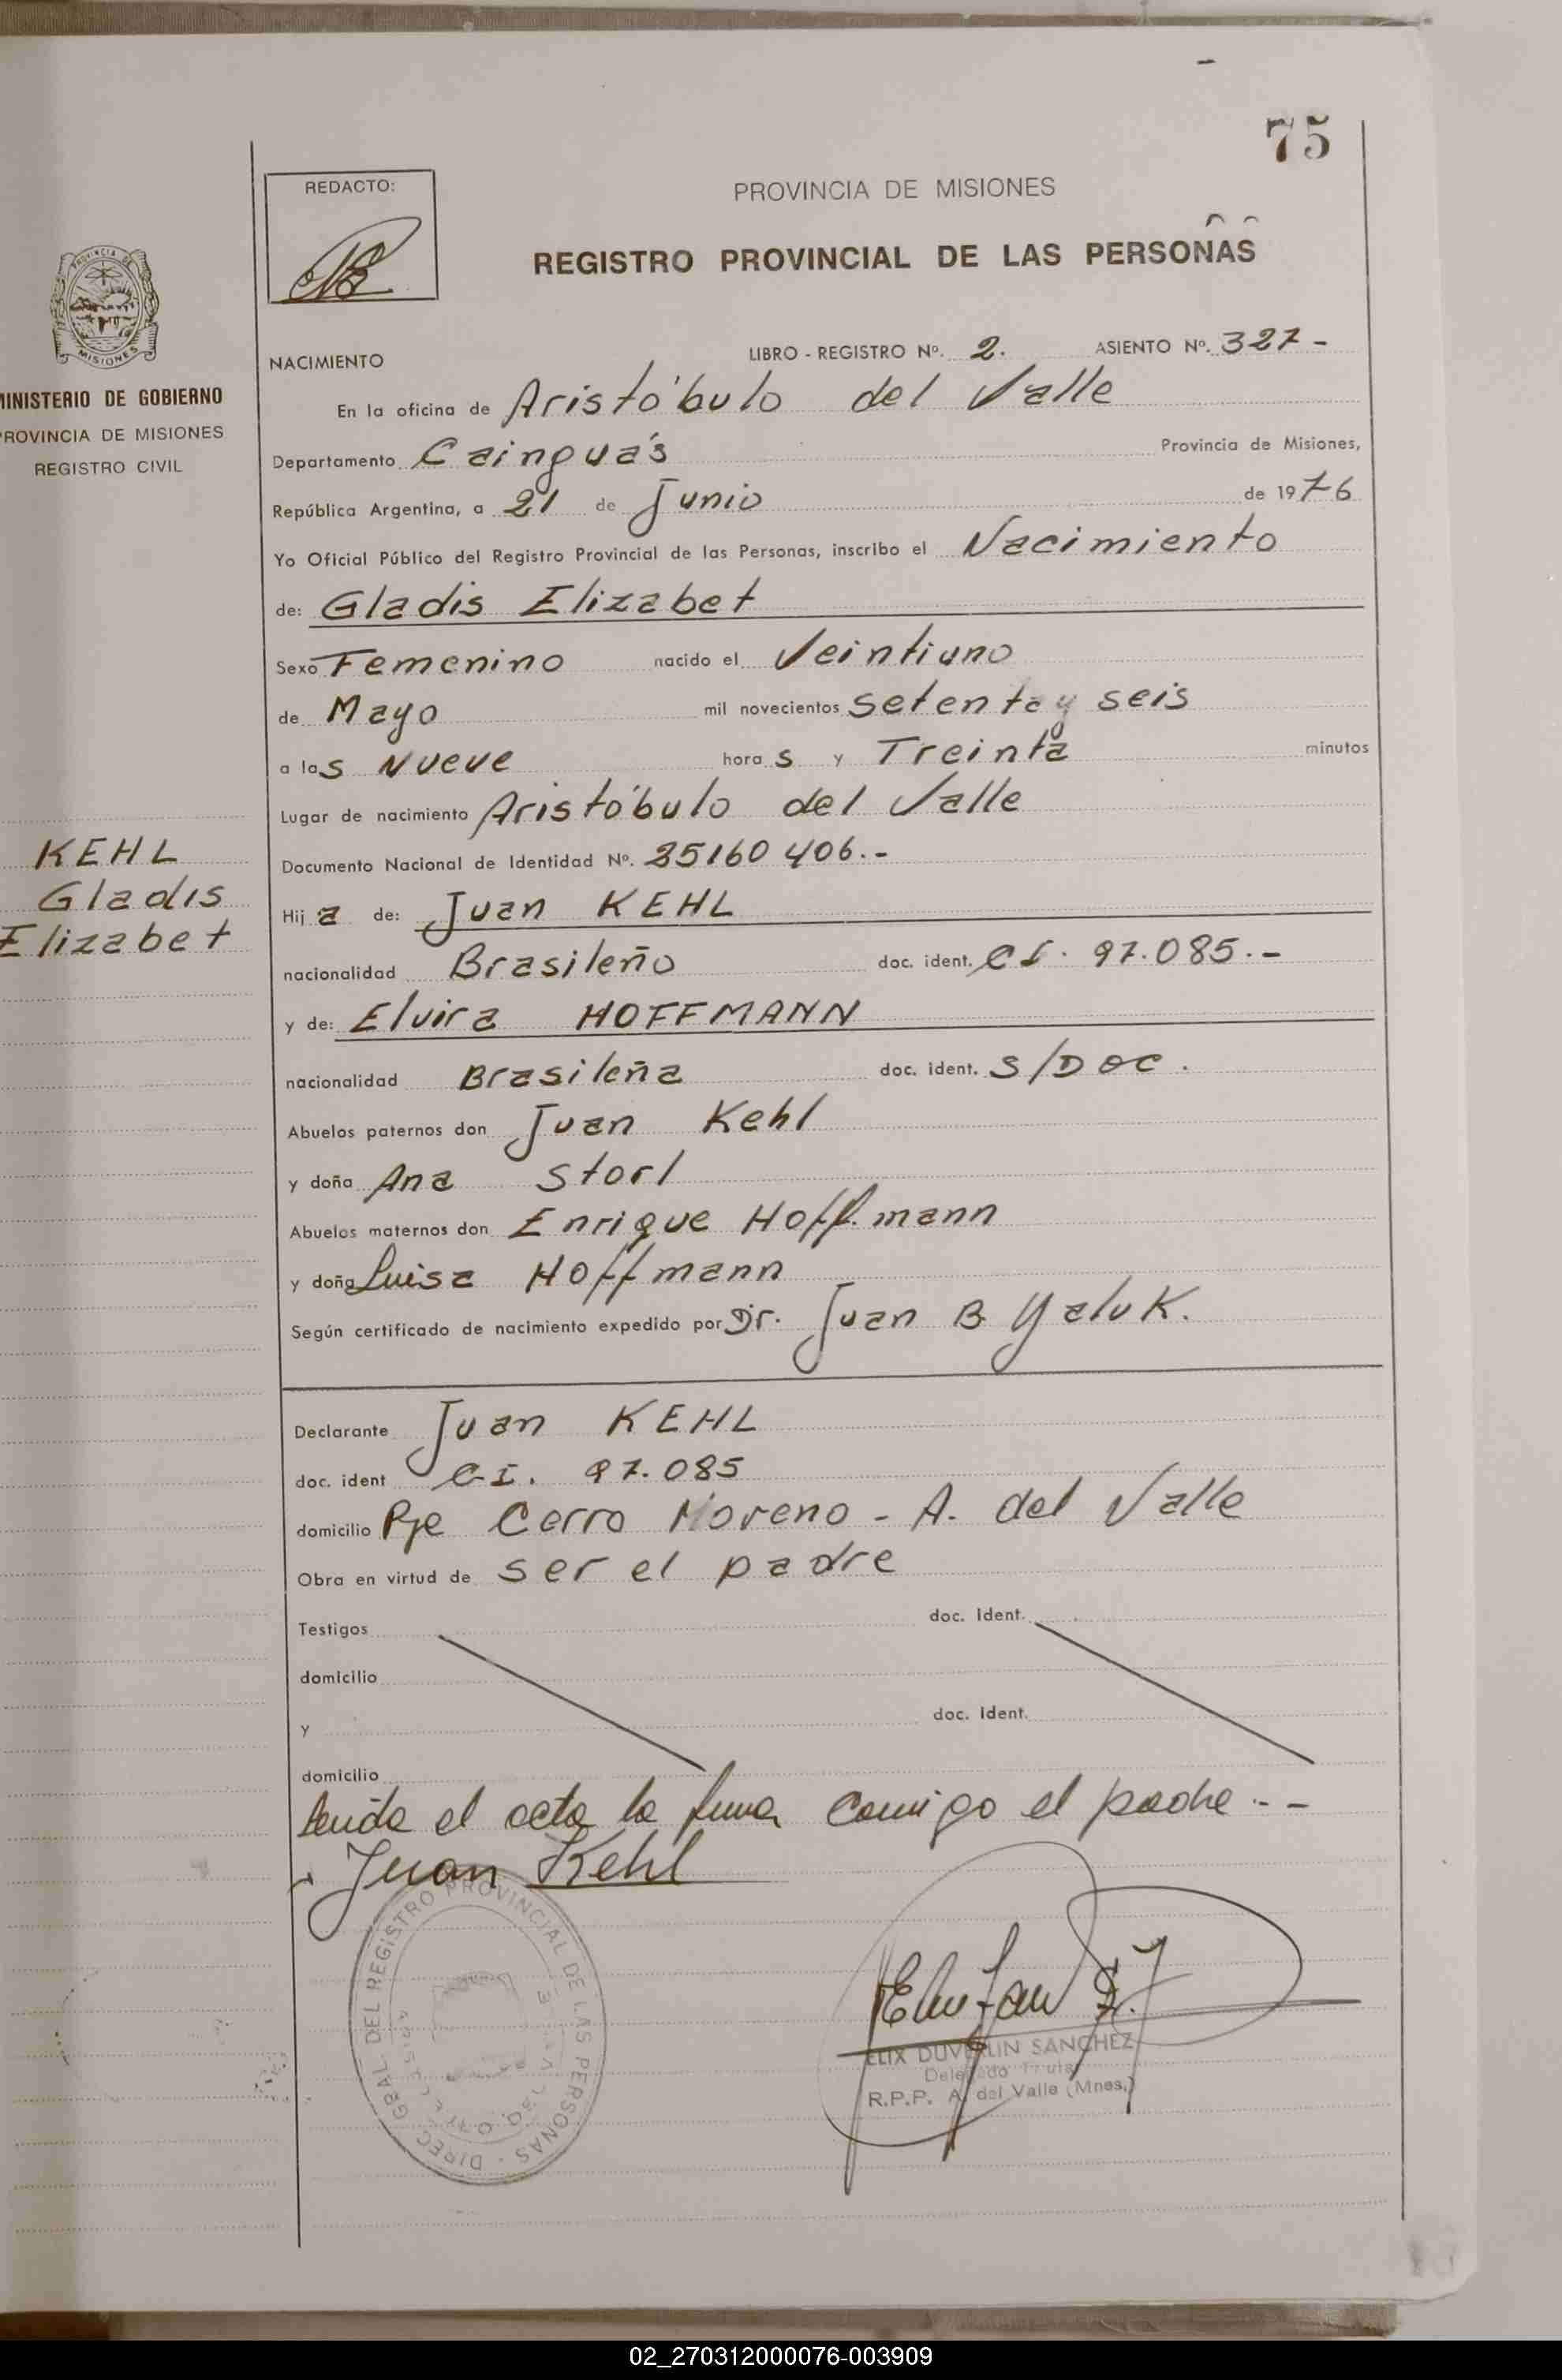 75
REDACTO:
PROVINCIA DE MISIONES
REGISTRO PROVINCIAL DE LAS PERSONAS
PROVINCIA DE
MISIONES
MINISTERIO DE GOBIERNO
PROVINCIA DE MISIONES
REGISTRO CIVIL
NACIMIENTO LIBRO - REGISTRO Nº. 2. ASIENTO Nº. 327 -
En la oficina de Aristóbulo del Valle
Departamento Cainguás Provincia de Misiones,
República Argentina, a 21 de Junio de 1976
Yo Oficial Público del Registro Provincial de las Personas, inscribo el Nacimiento
de: Gladis Elizabet
Sexo Femenino nacido el Veintiuno
de Mayo mil novecientos setenta y seis
a las Nueve horas y Treinta minutos
Lugar de nacimiento Aristóbulo del Valle
KEHL
Gladis
Elizabet
Documento Nacional de Identidad Nº. 25160 406.-
Hija de: Juan KEHL
nacionalidad Brasileño doc. ident. CI. 97.085.-
y de: Elvira HOFFMANN
nacionalidad Brasileña doc. ident. S/DOC.
Abuelos paternos don Juan Kehl
y doña Ana Storl
Abuelos maternos don Enrique Hoffmann
y doña Luisa Hoffmann
Según certificado de nacimiento expedido por Dr. Juan B Yaluk.
Declarante Juan KEHL
doc. ident CI. 97.085
domicilio Pje Cerro Moreno - A. del Valle
Obra en virtud de ser el padre
Testigos doc. Ident.
domicilio
y doc. Ident.
domicilio
Leída el acta la firma comigo el padre --
Juan Kehl
DIREC. GRAL DEL REGISTRO PROVINCIAL DE LAS PERSONAS
ELIX DUVERLIN SANCHEZ
Delegado Titular
R.P.P. A. del Valle (Mnes.)
02_270312000076-003909